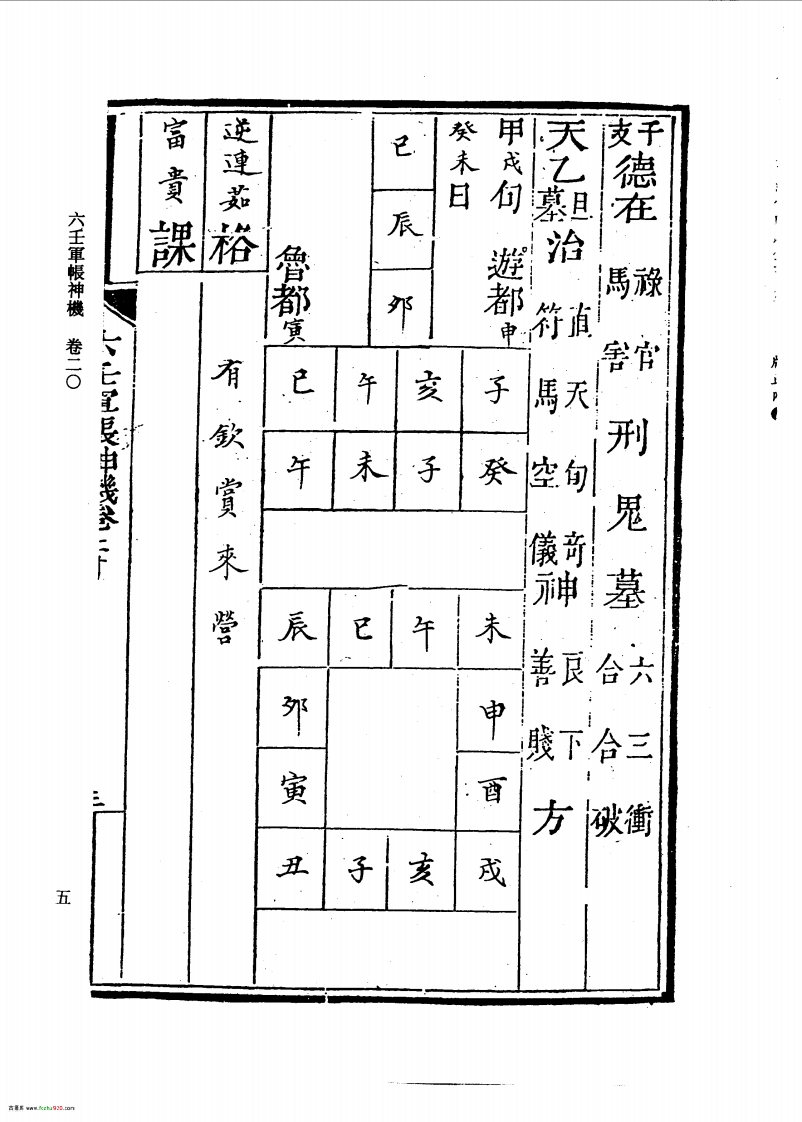 干支德在 祿馬 官害 刑 鬼 墓 六合 三合 衝破
天乙 旦墓 治 直符 天馬 旬空 奇儀 神 良善 下賤 方
甲戌旬 遊都申
癸未日
巳
辰
夘
魯都寅
子 亥 午 巳
癸 子 未 午
未 午 巳 辰
申 夘
酉 寅
戌 亥 子 丑
逆連茹格
有欽賞來營
富貴課
六壬軍帳神機卷二十
三
六壬軍帳神機 卷二〇
五
www.fozhu920.com